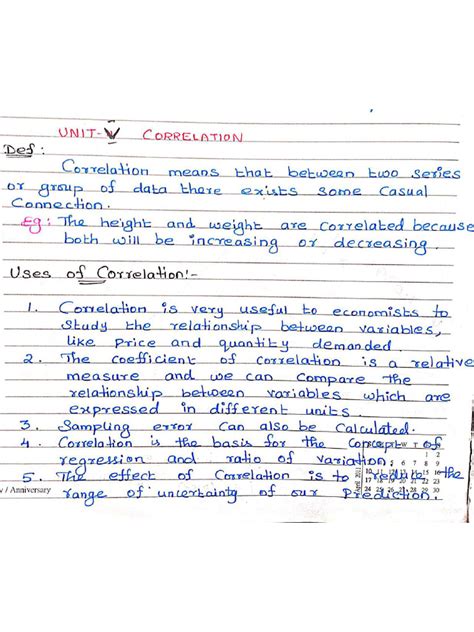 UNIT-V CORRELATION
Def :
Correlation means that between two series
or group of data there exists some Casual
Connection.
Eg: The height and weight are correlated because
both will be increasing or decreasing.
Uses of Correlation:-
1. Correlation is very useful to economists to
study the relationship between variables,
like price and quantity demanded.
2. The coefficient of correlation is a relative
measure and we can compare the
relationship between variables which are
expressed in different units.
3. Sampling error can also be calculated.
4. Correlation is the basis for the concept of
regression and ratio of variation.
5. The effect of Correlation is to reduce the
range of uncertainty of our Prediction.
v / Anniversary
April 2021
W T
1 2
8 9
15 16
17 18 19 20 21 22 23
24 25 26 27 28 29 30